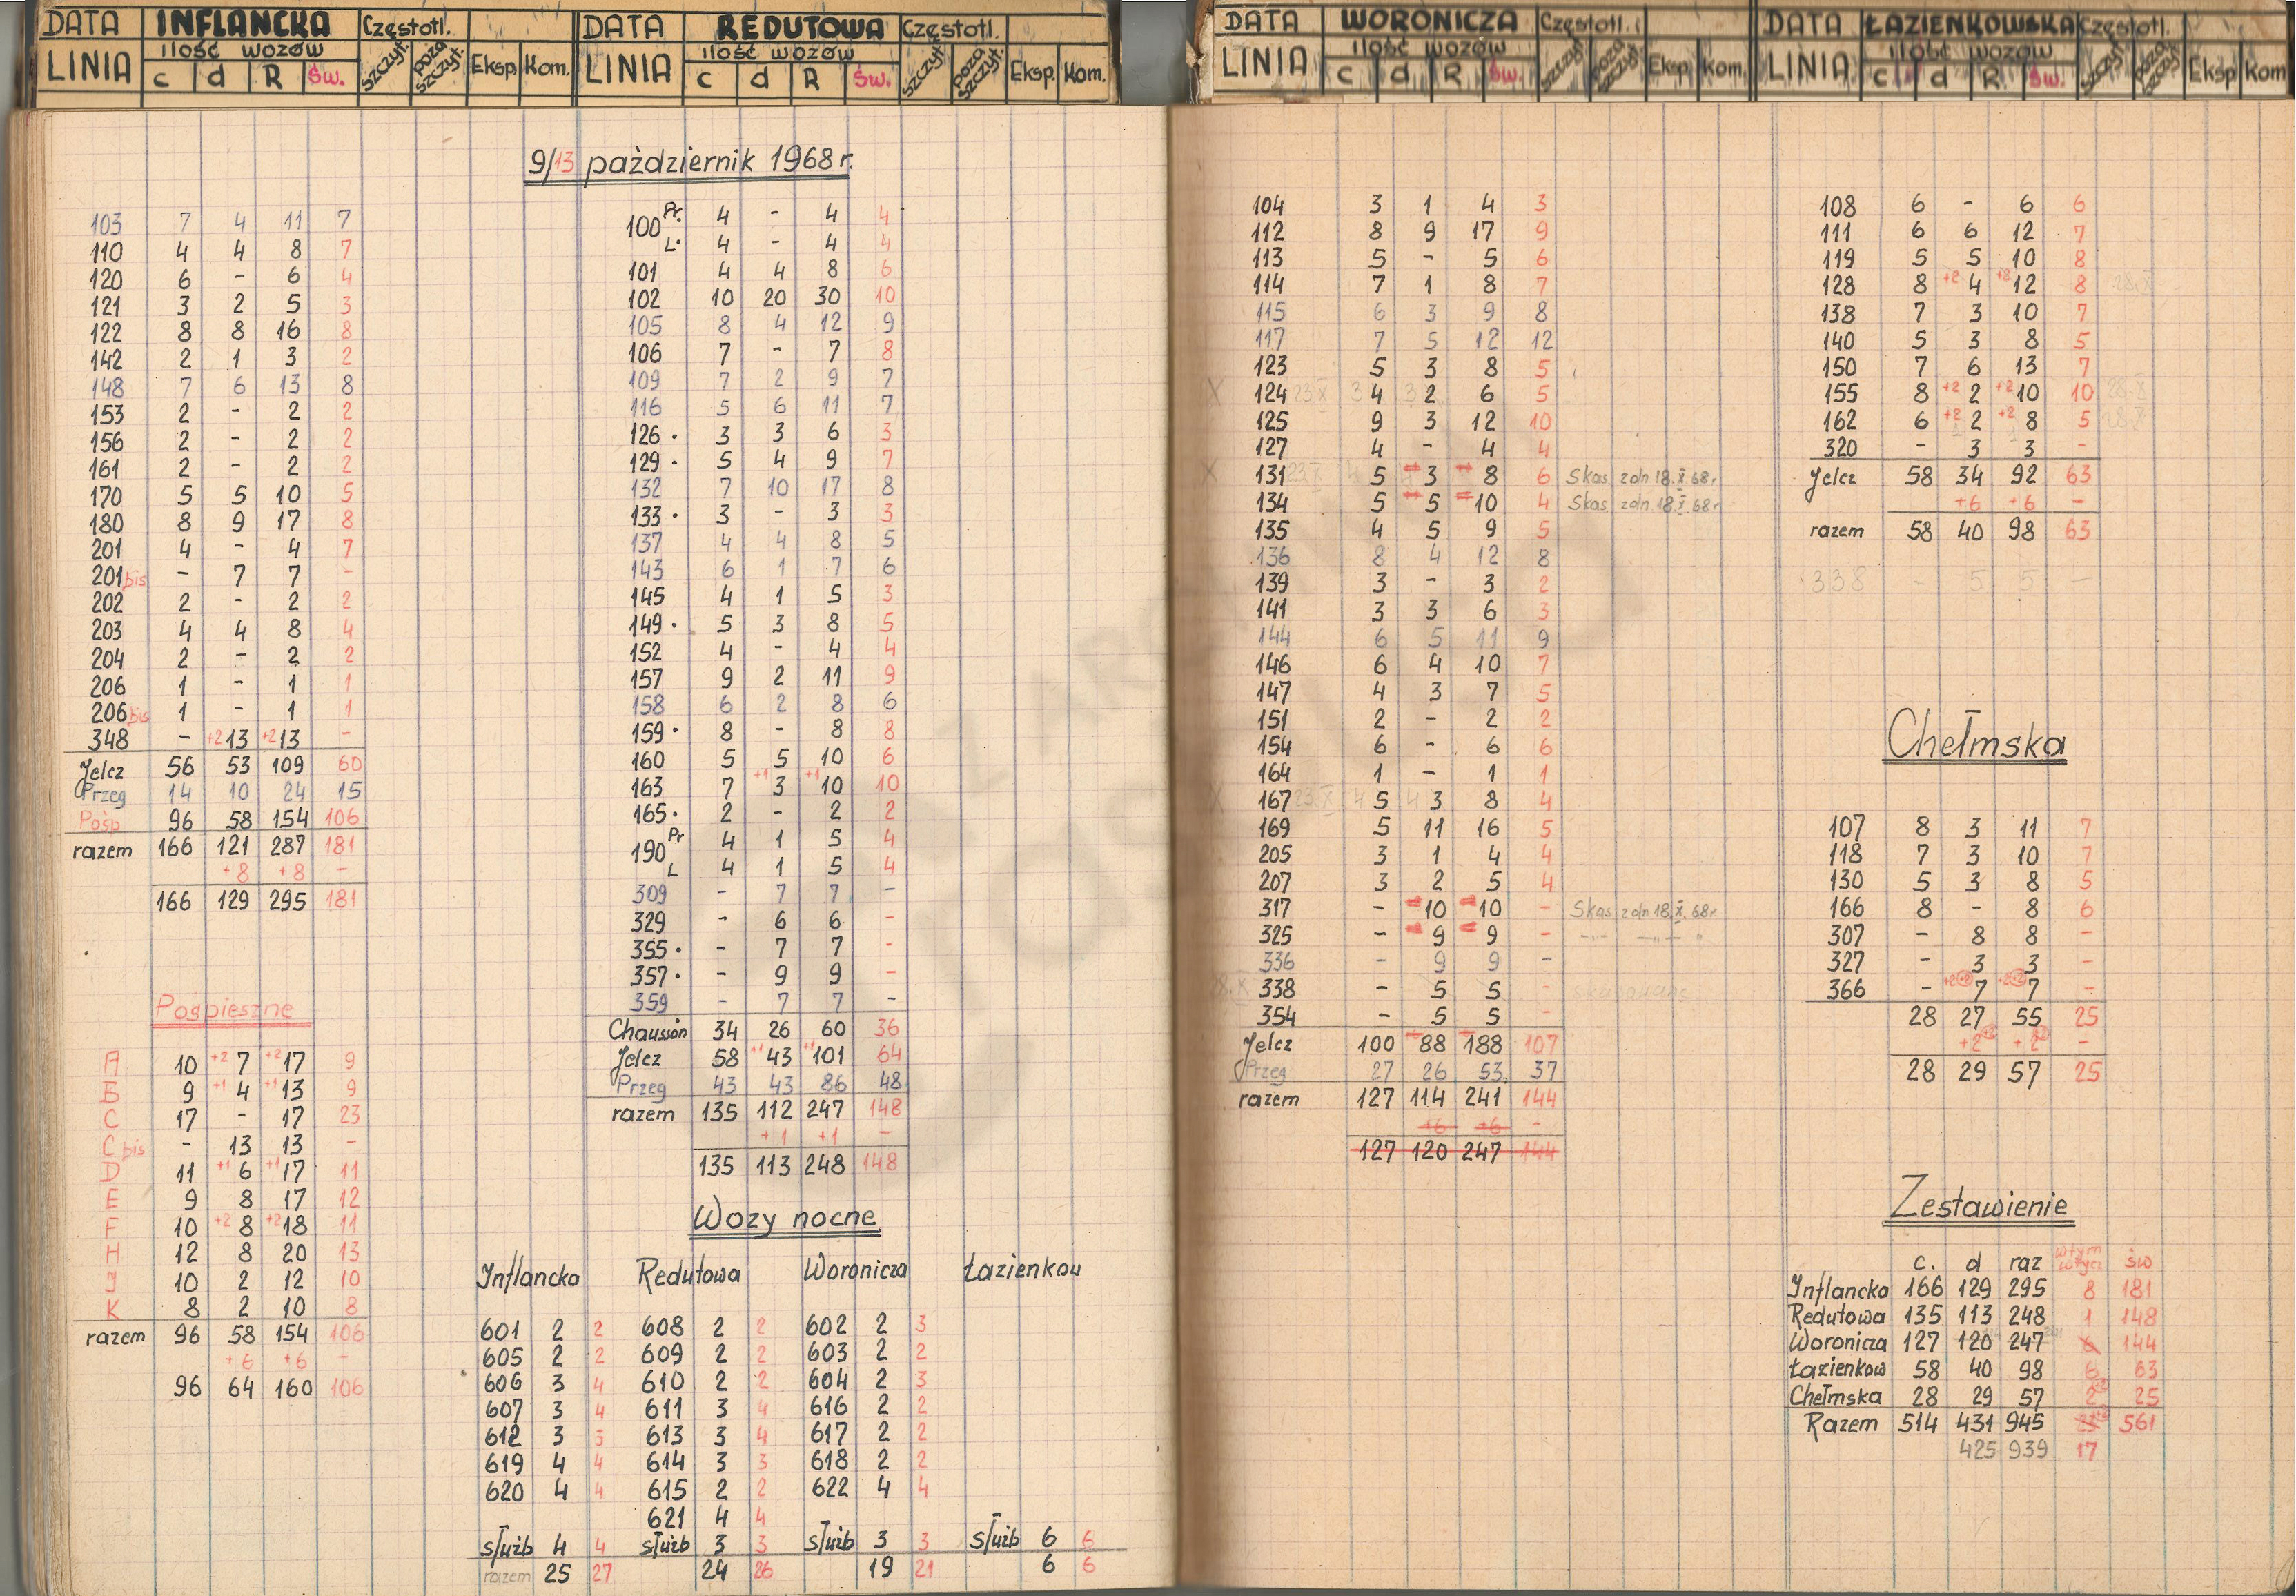 DATA INFLANCKA Częstotl.
LINIA ilość wozów szczyt. poza szczyt. Eksp. Kom.
c d R św.
DATA REDUTOWA Częstotl.
LINIA ilość wozów szczyt. poza szczyt. Eksp. Kom.
c d R św.
DATA WORONICZA Częstotl.
LINIA ilość wozów szczyt. poza szczyt. Eksp. Kom.
c d R św.
DATA ŁAZIENKOWSKA Częstotl.
LINIA ilość wozów szczyt. poza szczyt. Eksp Kom
c d R. św.
9/13 październik 1968 r.
103 7 4 11 7
110 4 4 8 7
120 6 - 6 4
121 3 2 5 3
122 8 8 16 8
142 2 1 3 2
148 7 6 13 8
153 2 - 2 2
156 2 - 2 2
161 2 - 2 2
170 5 5 10 5
180 8 9 17 8
201 4 - 4 7
201 bis - 7 7 -
202 2 - 2 2
203 4 4 8 4
204 2 - 2 2
206 1 - 1 1
206 bis 1 - 1 1
348 - +2 13 +2 13 -
Jelcz 56 53 109 60
Przeg 14 10 24 15
Pośp 96 58 154 106
razem 166 121 287 181
+8 +8 -
166 129 295 181
Pośpieszne
A 10 +2 7 +2 17 9
B 9 +1 4 +1 13 9
C 17 - 17 23
C bis - 13 13 -
D 11 +1 6 +1 17 11
E 9 8 17 12
F 10 +2 8 +2 18 11
H 12 8 20 13
J 10 2 12 10
K 8 2 10 8
razem 96 58 154 106
+6 +6 -
96 64 160 106
100 Pr. 4 - 4 4
L. 4 - 4 4
101 4 4 8 6
102 10 20 30 10
105 8 4 12 9
106 7 - 7 8
109 7 2 9 7
116 5 6 11 7
126 . 3 3 6 3
129 . 5 4 9 7
132 7 10 17 8
133 . 3 - 3 3
137 4 4 8 5
143 6 1 7 6
145 4 1 5 3
149 . 5 3 8 5
152 4 - 4 4
157 9 2 11 9
158 6 2 8 6
159 . 8 - 8 8
160 5 5 10 6
163 7 +1 3 +1 10 10
165 . 2 - 2 2
190 Pr 4 1 5 4
L 4 1 5 4
309 - 7 7 -
329 - 6 6 -
355 . - 7 7 -
357 . - 9 9 -
359 - 7 7 -
Chausson 34 26 60 36
Jelcz 58 +1 43 +1 101 64
Przeg 43 43 86 48
razem 135 112 247 148
+1 +1 -
135 113 248 148
Wozy nocne
Inflancka Redutowa Woronicza Łazienkow
601 2 2 608 2 2 602 2 3
605 2 2 609 2 2 603 2 2
606 3 4 610 2 2 604 2 3
607 3 4 611 3 4 616 2 2
612 3 3 613 3 4 617 2 2
619 4 4 614 3 3 618 2 2
620 4 4 615 2 2 622 4 4
621 4 4
służb 4 4 służb 3 3 służb 3 3 służb 6 6
razem 25 27 24 26 19 21 6 6
104 3 1 4 3
112 8 9 17 9
113 5 - 5 6
114 7 1 8 7
115 6 3 9 8
117 7 5 12 12
123 5 3 8 5
X 124 23 X 3 4 3 2 6 5
125 9 3 12 10
127 4 - 4 4
X 131 23 X 5 3 8 6 Skas. z dn 18. X 68 r.
134 5 5 10 4 Skas. z dn. 18. X. 68 r
135 4 5 9 5
136 8 4 12 8
139 3 - 3 2
141 3 3 6 3
144 6 5 11 9
146 6 4 10 7
147 4 3 7 5
151 2 - 2 2
154 6 - 6 6
164 1 - 1 1
X 167 23 X 4 5 4 3 8 4
169 5 11 16 5
205 3 1 4 4
207 3 2 5 4
317 - 10 10 - Skas z dn 18. X. 68 r.
325 - 9 9 - -"- -"-
336 - 9 9 -
28.X 338 - 5 5 -
354 - 5 5 -
Jelcz 100 88 188 107
Przeg 27 26 53 37
razem 127 114 241 144
+6 +6 -
127 120 247 144
108 6 - 6 6
111 6 6 12 7
119 5 5 10 8
128 8 +2 4 +2 12 8 28.X
138 7 3 10 7
140 5 3 8 5
150 7 6 13 7
155 8 +2 2 +2 10 10 28.X
162 6 +2 2 +2 8 5 28.X
320 - 3 3 -
Jelcz 58 34 92 63
+6 +6 -
razem 58 40 98 63
338 - 5 5 -
Chełmska
107 8 3 11 7
118 7 3 10 7
130 5 3 8 5
166 8 - 8 6
307 - 8 8 -
327 - 3 3 -
366 - +2 7 +2 7 -
28 27 55 25
+2 +2 -
28 29 57 25
Zestawienie
c. d raz wtym wtycz św
Inflancka 166 129 295 8 181
Redutowa 135 113 248 1 148
Woronicza 127 120 247 6 144
Łazienkow 58 40 98 6 63
Chełmska 28 29 57 2 25
Razem 514 431 945 561
425 939 17